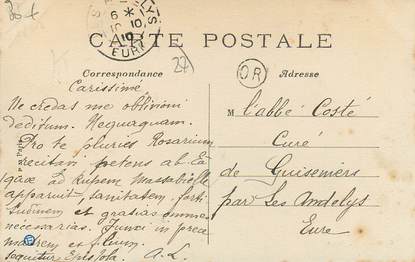 284
LYS
6 *
10 10
10
EURE
CARTE POSTALE
27
OR
Correspondance
Adresse
Carissime
Ne credas me oblivioni
deditum. Nequaquam.
Pro te pluries Rosarium
recitavi petens ab Ea
quae ad Rupem Massabielle
apparuit, sanitatem, forti
tudinem et gratias omnes
necessarias. Junxi in prece
matrem et filium.
Sequitur Epistola. A. L.
M l'abbé Costé
Curé
de Guiseniers
par Les Andelys
Eure